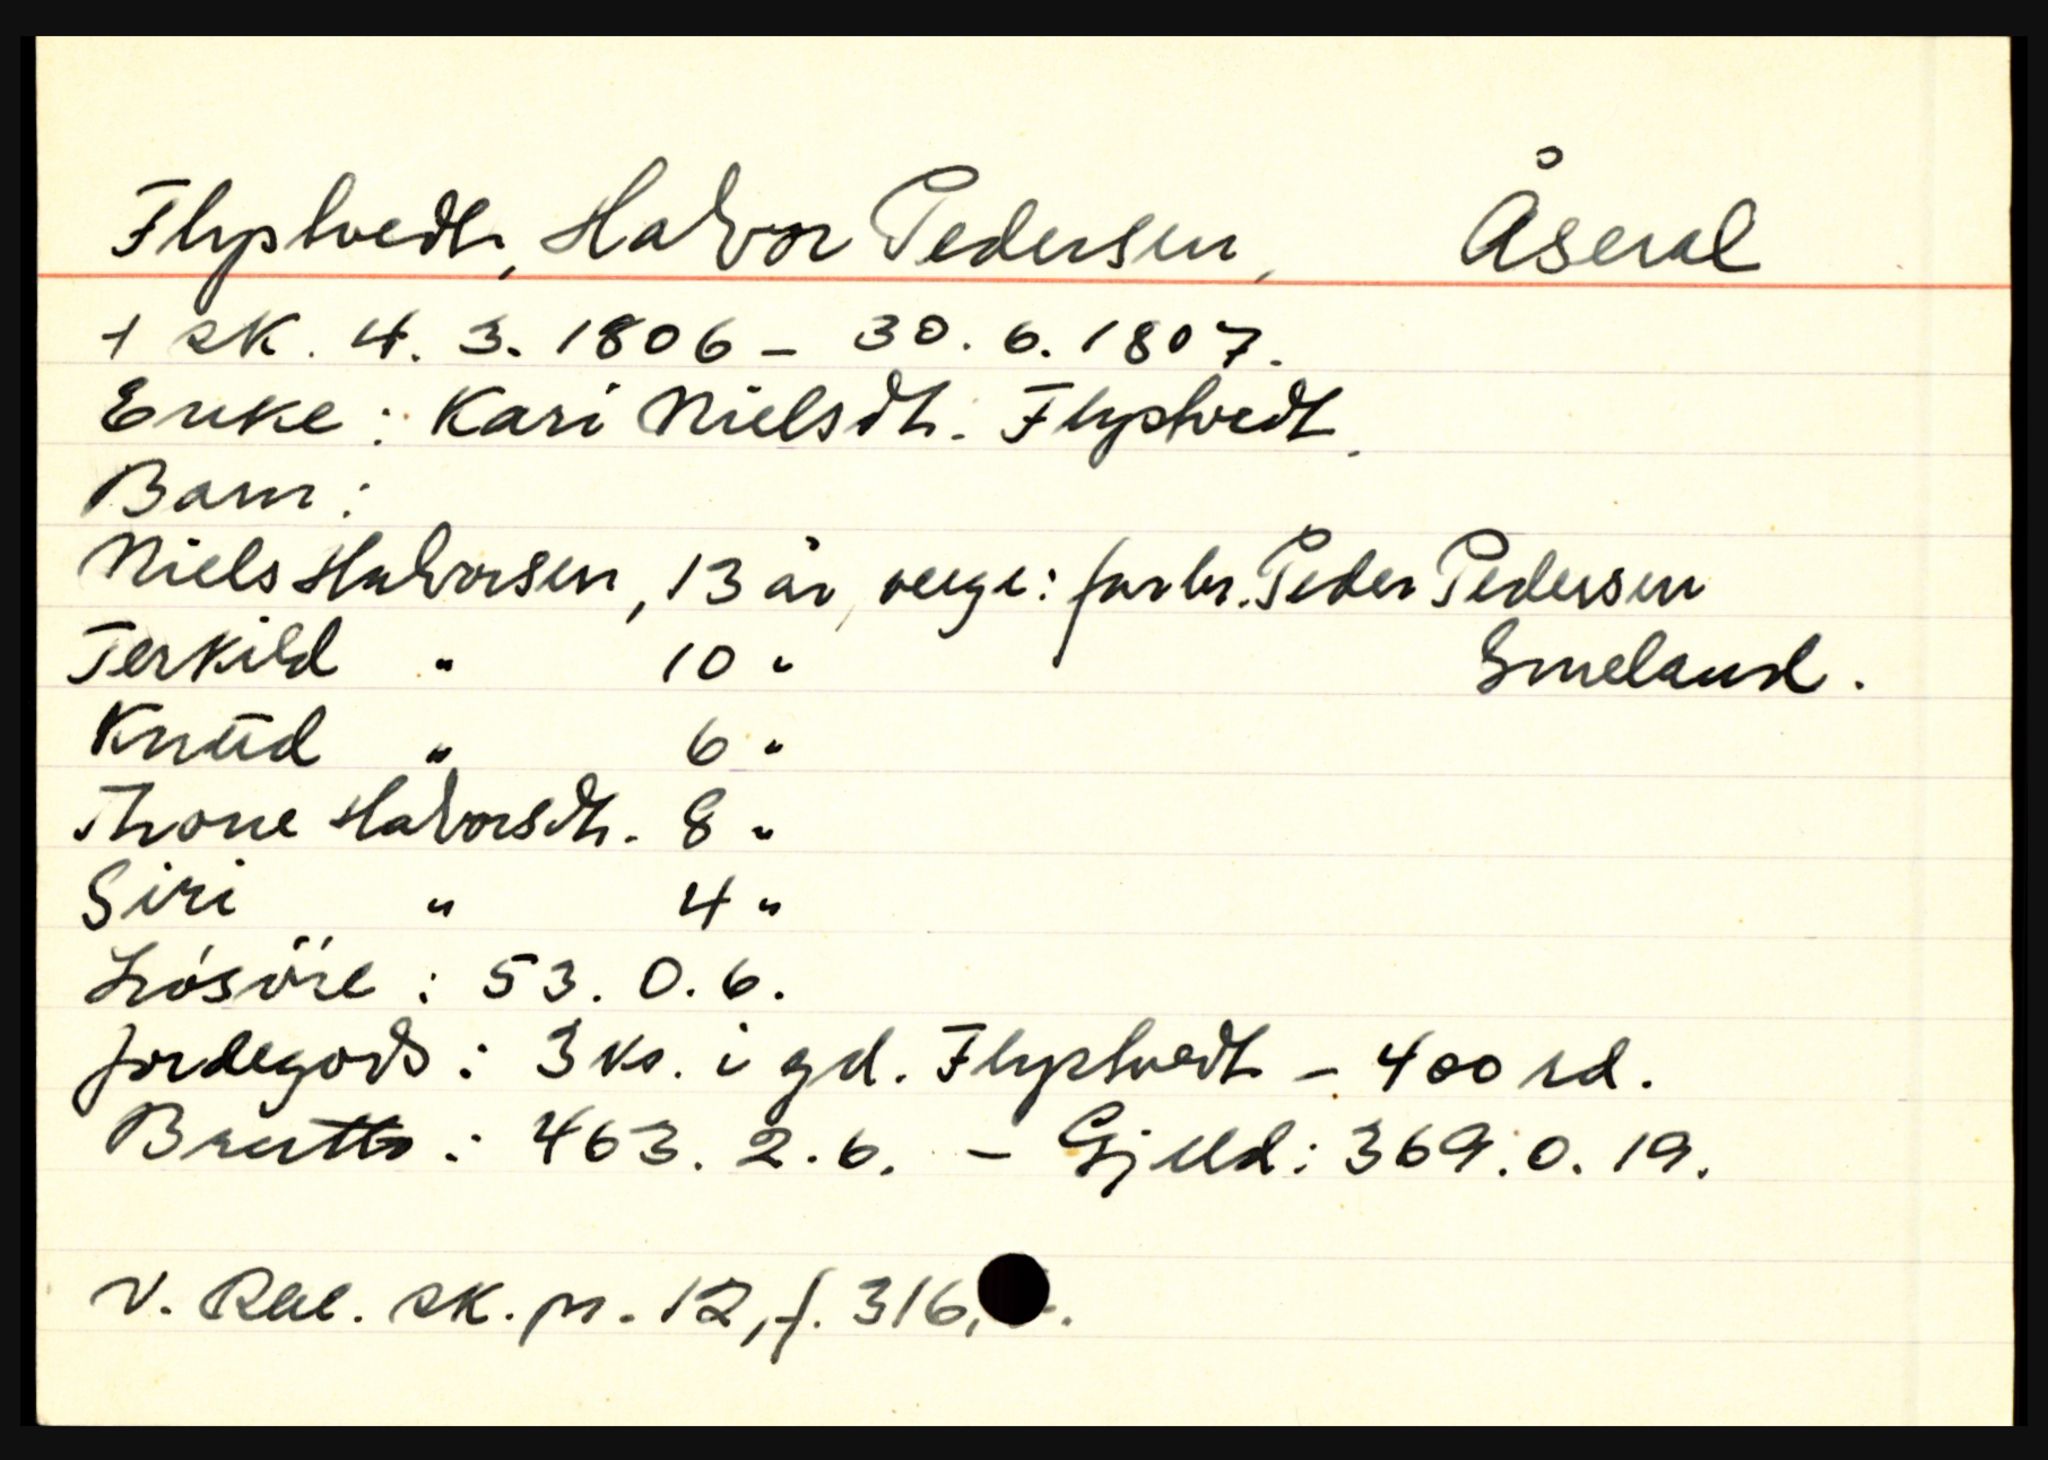 Flyptvedt, Halvor Pedersen, Åseral
+ sk. 4. 3. 1806 – 30. 6. 1807.
Enke: Kari Nielsdtr. Flyptvedt.
Barn:
Niels Halvorsen, 13 år, verge: farbr. Peder Pedersen
Terkild " 10 " Smeland.
Knud " 6 "
Thone Halvorsdtr. 8 "
Siri " 4 "
Lösöre: 53. 0. 6.
Jordegods: 3 ks. i gd. Flyptvedt – 400 rd.
Brutto: 463. 2. 6. – Gjeld: 369. 0. 19.
V. Råb. sk. pr. 12, f. 316,